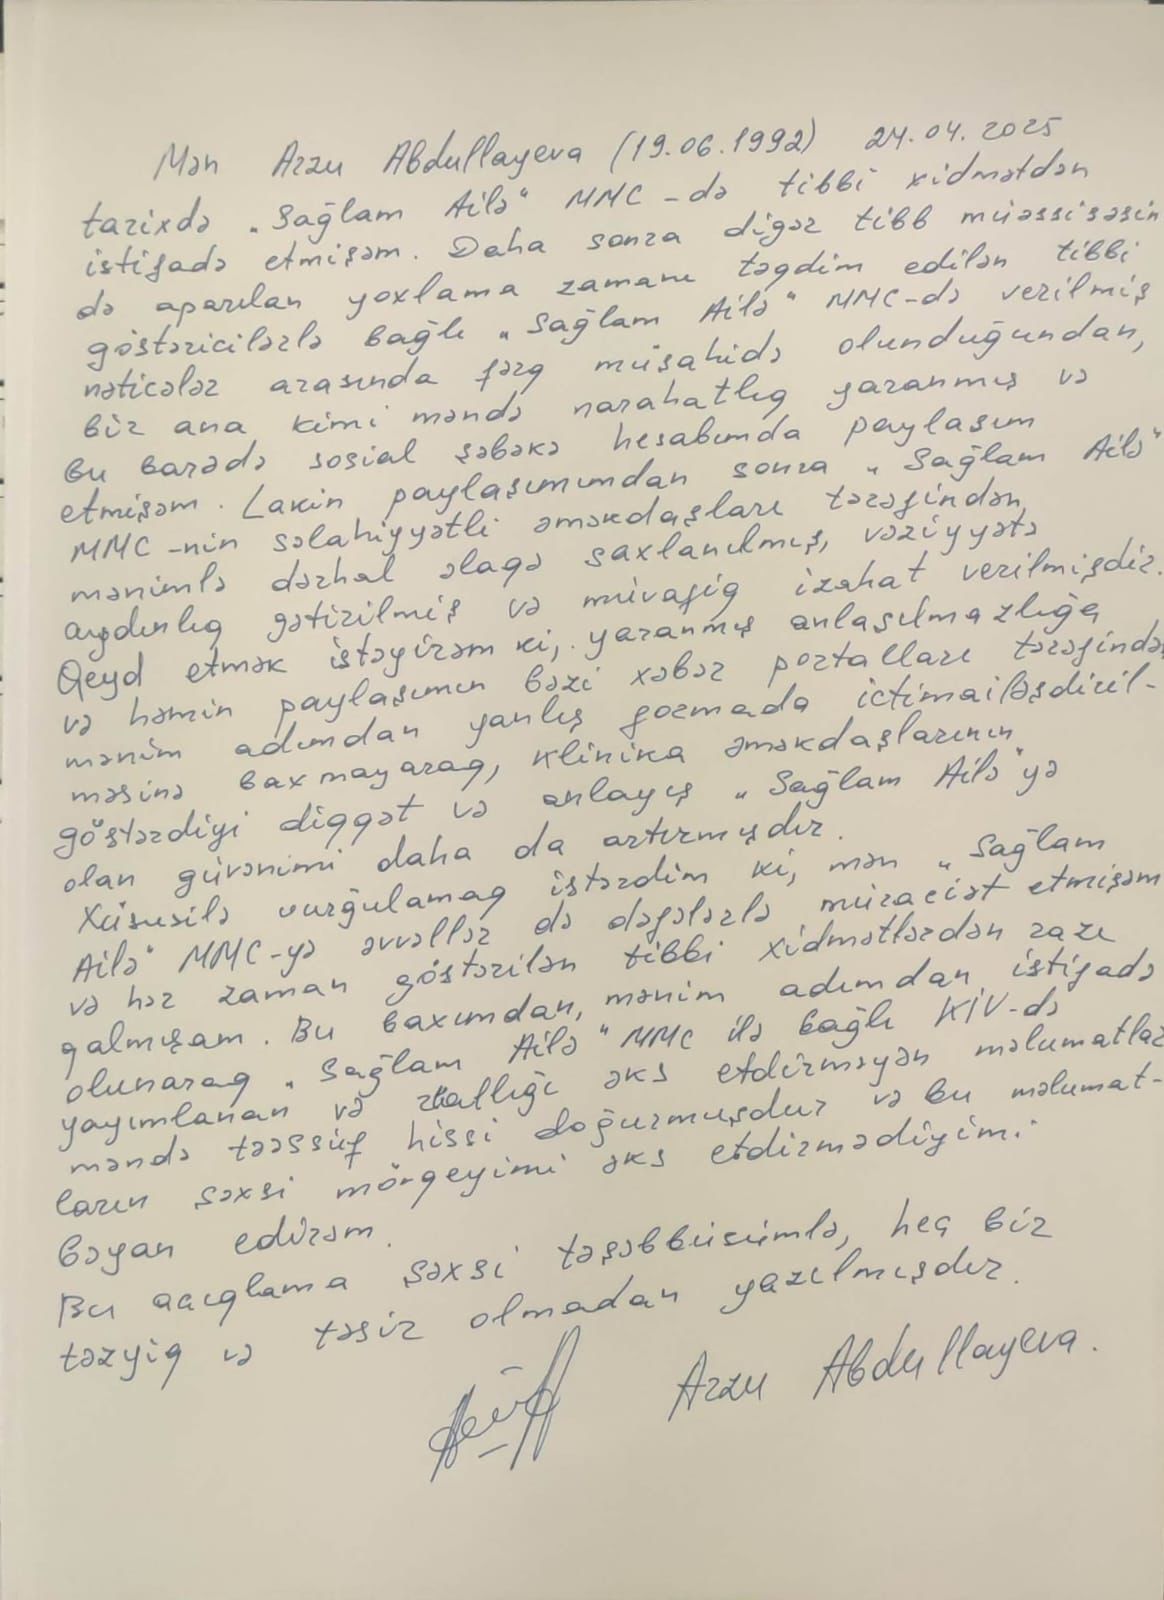 Mən Arzu Abdullayeva (19.06.1992) 24.04.2025
tarixdə „Sağlam Ailə“ MMC-də tibbi xidmətdən
istifadə etmişəm. Daha sonra digər tibb müəssisəsin
də aparılan yoxlama zamanı təqdim edilən tibbi
göstəricilərlə bağlı „Sağlam Ailə“ MMC-də verilmiş
nəticələr arasında fərq müşahidə olunduğundan,
bir ana kimi məndə narahatlıq yaranmış və
bu barədə sosial şəbəkə hesabımda paylaşım
etmişəm. Lakin paylaşımımdan sonra „Sağlam Ailə“
MMC-nin səlahiyyətli əməkdaşları tərəfindən,
mənimlə dərhal əlaqə saxlanılmış, vəziyyətə
aydınlıq gətirilmiş və müvafiq izahat verilmişdir.
Qeyd etmək istəyirəm ki, yaranmış anlaşılmazlığa
və həmin paylaşımın bəzi xəbər portalları tərəfindən
mənim adımdan yanlış formada ictimailəşdiril-
məsinə baxmayaraq, klinika əməkdaşlarının
göstərdiyi diqqət və anlayış „Sağlam Ailə“yə
olan güvənimi daha da artırmışdır.
Xüsusilə vurğulamaq istərdim ki, mən „Sağlam
Ailə“ MMC-yə əvvəllər də dəfələrlə müraciət etmişəm
və hər zaman göstərilən tibbi xidmətlərdən razı
qalmışam. Bu baxımdan, mənim adımdan istifadə
olunaraq „Sağlam Ailə“ MMC ilə bağlı KİV-də
yayımlanan və reallığı əks etdirməyən məlumatlar
məndə təəssüf hissi doğurmuşdur və bu məlumat-
ların şəxsi mövqeyimi əks etdirmədiyimi
bəyan edirəm.
Bu açıqlama şəxsi təşəbbüsümlə, heç bir
təzyiq və təsir olmadan yazılmışdır.
Arzu Abdullayeva.